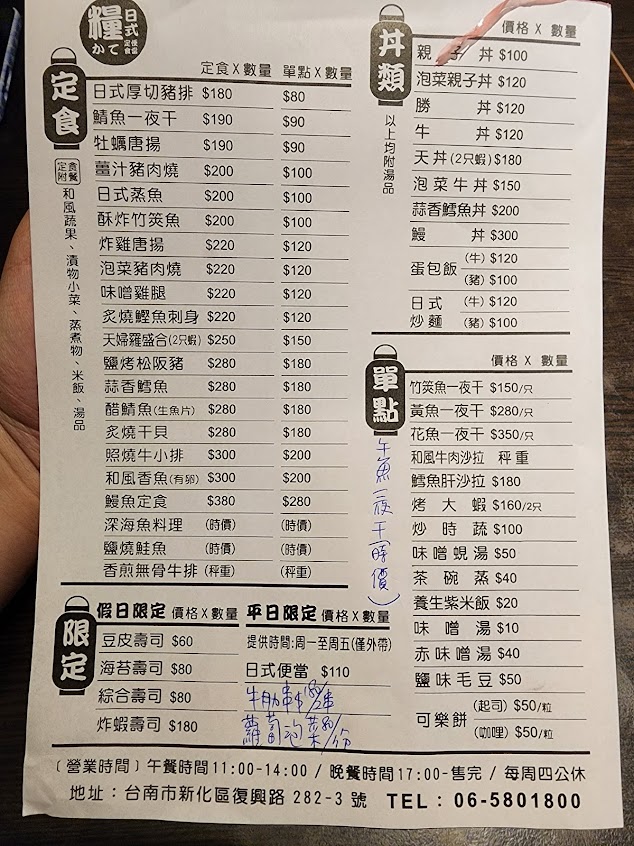 糧 日式
かて 定食 便當
定食
定食附餐
和風蔬果、漬物小菜、蒸煮物、米飯、湯品
定食 X 數量 單點 X 數量
日式厚切豬排 $180 $80
鯖魚一夜干 $190 $90
牡蠣唐揚 $190 $90
薑汁豬肉燒 $200 $100
日式蒸魚 $200 $100
酥炸竹筴魚 $200 $100
炸雞唐揚 $220 $120
泡菜豬肉燒 $220 $120
味噌雞腿 $220 $120
炙燒鰹魚刺身 $220 $120
天婦羅盛合(2只蝦) $250 $150
鹽烤松阪豬 $280 $180
蒜香鱈魚 $280 $180
醋鯖魚(生魚片) $280 $180
炙燒干貝 $280 $180
照燒牛小排 $300 $200
和風香魚(有卵) $300 $200
鰻魚定食 $380 $280
深海魚料理 (時價) (時價)
鹽燒鮭魚 (時價) (時價)
香煎無骨牛排 (秤重) (秤重)
限定
假日限定 價格 X 數量
豆皮壽司 $60
海苔壽司 $80
綜合壽司 $80
炸蝦壽司 $180
平日限定 價格 X 數量
提供時間:周一至周五(僅外帶)
日式便當 $110
牛肋串
蘿蔔泡菜
丼類
以上均附湯品
價格 X 數量
親子丼 $100
泡菜親子丼 $120
勝丼 $120
牛丼 $120
天丼(2只蝦) $180
泡菜牛丼 $150
蒜香鱈魚丼 $200
鰻丼 $300
蛋包飯 (牛) $120
(豬) $100
日式炒麵 (牛) $120
(豬) $100
單點
午魚一夜干(時價)
價格 X 數量
竹筴魚一夜干 $150/只
黃魚一夜干 $280/只
花魚一夜干 $350/只
和風牛肉沙拉 秤重
鱈魚肝沙拉 $180
烤大蝦 $160/2只
炒時蔬 $100
味噌蜆湯 $50
茶碗蒸 $40
養生紫米飯 $20
味噌湯 $10
赤味噌湯 $40
鹽味毛豆 $50
可樂餅 (起司) $50/粒
(咖哩) $50/粒
〔營業時間〕午餐時間11:00-14:00 / 晚餐時間17:00-售完 / 每周四公休
地址：台南市新化區復興路 282-3 號 TEL：06-5801800